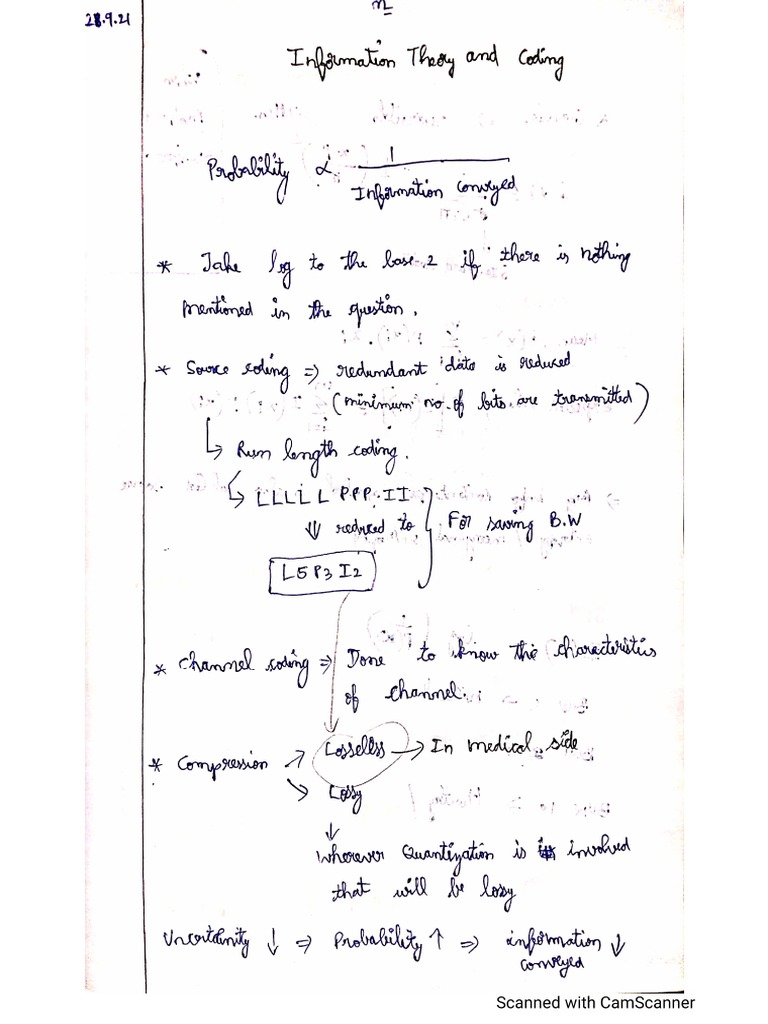 28.9.21
Information Theory and Coding
Probability ∝ 1 / Information Conveyed
* Take log to the base 2 if there is nothing
mentioned in the question.
* Source coding ⇒ redundant data is reduced
(minimum no. of bits are transmitted)
↳ Run length coding.
↳ LLLLL PPP II
⇓ reduced to } For saving B.W
L5 P3 I2
* Channel coding ⇒ Done to know the characteristics
of channel.
* Compression → Lossless → In medical side
→ Lossy
↓
Wherever Quantization is involved
that will be lossy
Uncertainity ↓ ⇒ Probability ↑ ⇒ information ↓
conveyed
Scanned with CamScanner